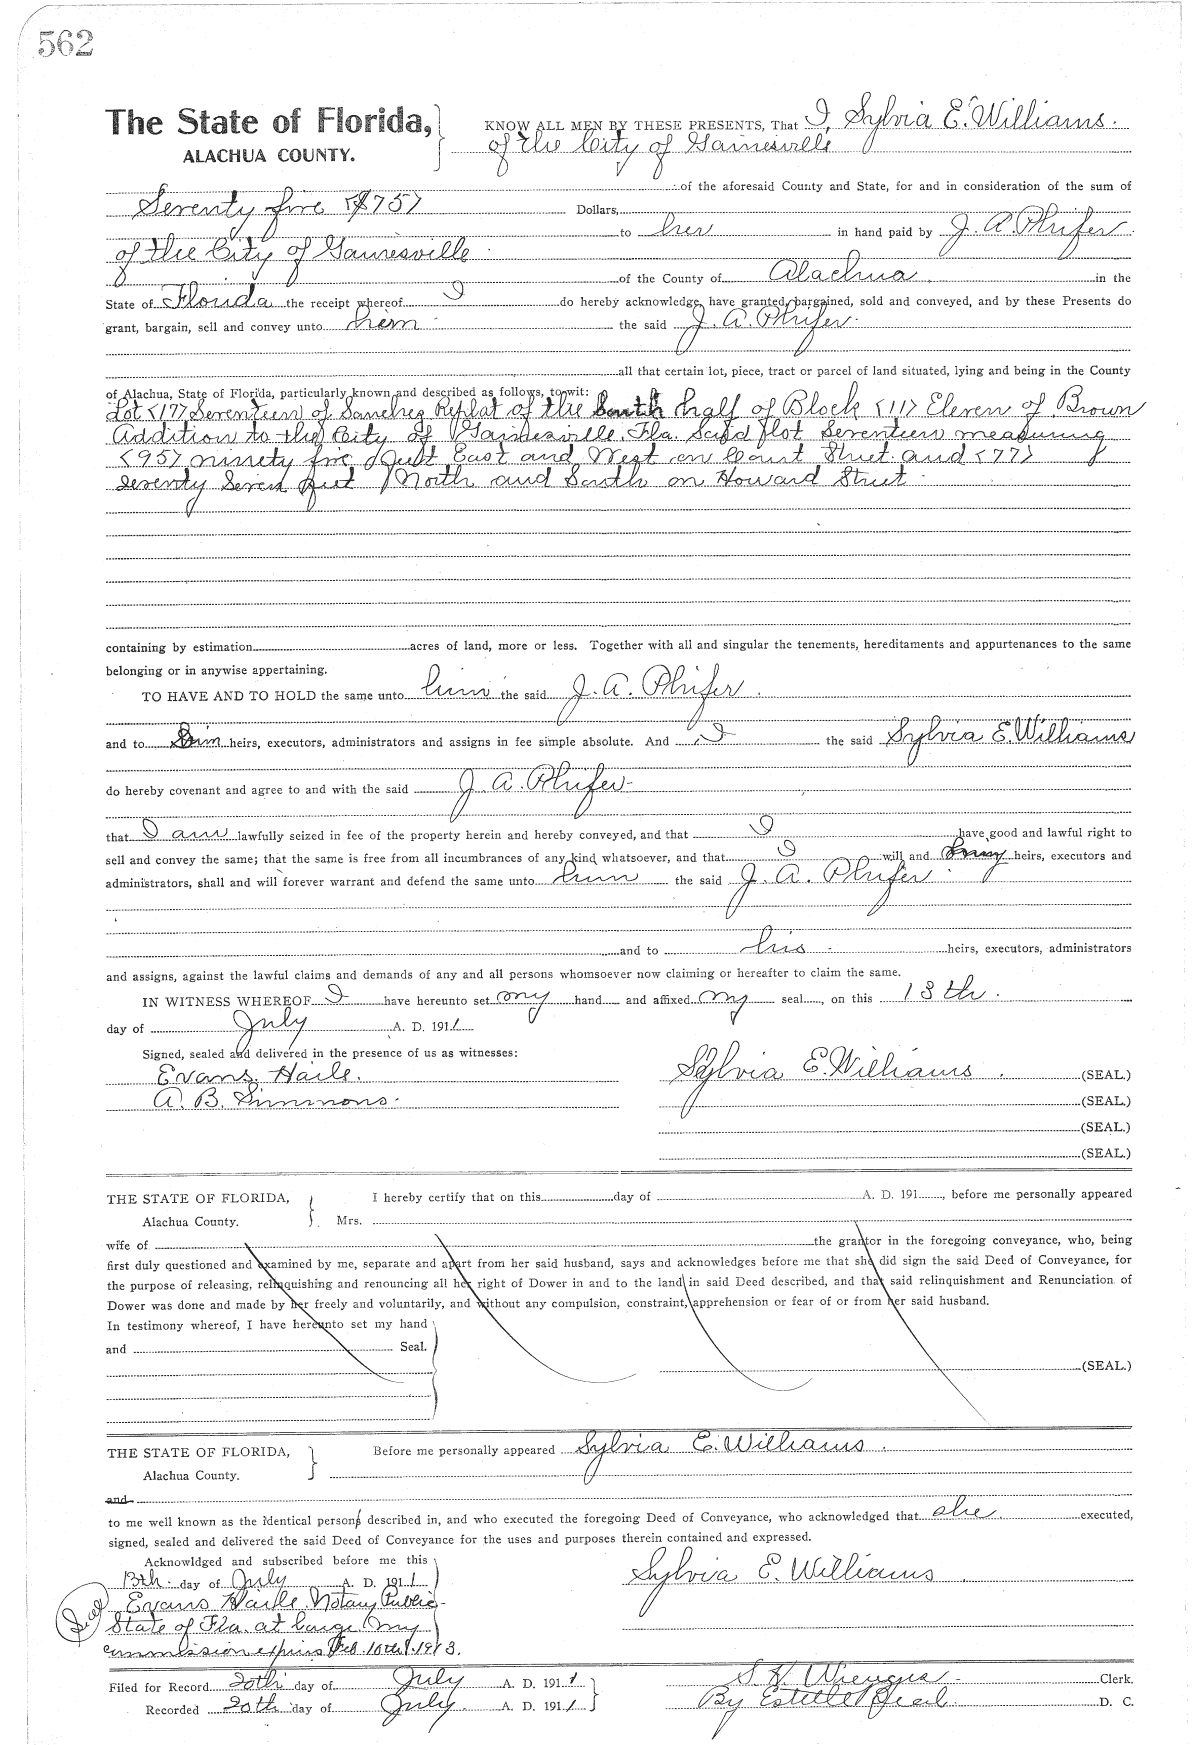 562
The State of Florida,
ALACHUA COUNTY.
KNOW ALL MEN BY THESE PRESENTS, That I, Sylvia E. Williams.
of the City of Gainesville
of the aforesaid County and State, for and in consideration of the sum of
Seventy five ($75) Dollars,
to her in hand paid by J. A. Phifer
of the City of Gainesville
of the County of Alachua in the
State of Florida the receipt whereof I do hereby acknowledge, have granted, bargained, sold and conveyed, and by these Presents do
grant, bargain, sell and convey unto him the said J. A. Phifer.
all that certain lot, piece, tract or parcel of land situated, lying and being in the County
of Alachua, State of Florida, particularly known and described as follows, to-wit:
Lot (17) Seventeen of Sanchez Replat of the South half of Block (11) Eleven of Brown
Addition to the City of Gainesville Fla. Said lot Seventeen measuring
(95) ninety five feet East and West on Court Street and (77)
Seventy Seven feet North and South on Howard Street.
containing by estimation acres of land, more or less. Together with all and singular the tenements, hereditaments and appurtenances to the same
belonging or in anywise appertaining.
TO HAVE AND TO HOLD the same unto him the said J. A. Phifer.
and to heirs, executors, administrators and assigns in fee simple absolute. And I the said Sylvia E. Williams
do hereby covenant and agree to and with the said J. A. Phifer
that I am lawfully seized in fee of the property herein and hereby conveyed, and that I have good and lawful right to
sell and convey the same; that the same is free from all incumbrances of any kind whatsoever, and that I will and my heirs, executors and
administrators, shall and will forever warrant and defend the same unto him the said J. A. Phifer
and to his heirs, executors, administrators
and assigns, against the lawful claims and demands of any and all persons whomsoever now claiming or hereafter to claim the same.
IN WITNESS WHEREOF I have hereunto set my hand and affixed my seal, on this 13th.
day of July A. D. 1911
Signed, sealed and delivered in the presence of us as witnesses:
Evans Haile. Sylvia E. Williams. (SEAL.)
A. B. Simmons. (SEAL.)
(SEAL.)
(SEAL.)
THE STATE OF FLORIDA,
Alachua County.
I hereby certify that on this day of A. D. 191 , before me personally appeared
Mrs.
wife of the grantor in the foregoing conveyance, who, being
first duly questioned and examined by me, separate and apart from her said husband, says and acknowledges before me that she did sign the said Deed of Conveyance, for
the purpose of releasing, relinquishing and renouncing all her right of Dower in and to the land in said Deed described, and that said relinquishment and Renunciation of
Dower was done and made by her freely and voluntarily, and without any compulsion, constraint, apprehension or fear of or from her said husband.
In testimony whereof, I have hereunto set my hand
and Seal.
(SEAL.)
THE STATE OF FLORIDA,
Alachua County.
Before me personally appeared Sylvia E. Williams.
and
to me well known as the identical persons described in, and who executed the foregoing Deed of Conveyance, who acknowledged that she executed,
signed, sealed and delivered the said Deed of Conveyance for the uses and purposes therein contained and expressed.
Acknowldged and subscribed before me this
13th. day of July A. D. 1911 Sylvia E. Williams
Seal Evans Haile Notary Public
State of Fla. at large My
commission expires Feb. 10th 1913.
Filed for Record 20th day of July A. D. 1911 S. H. Wienges Clerk.
Recorded 20th day of July A. D. 1911 By Estelle D. C.